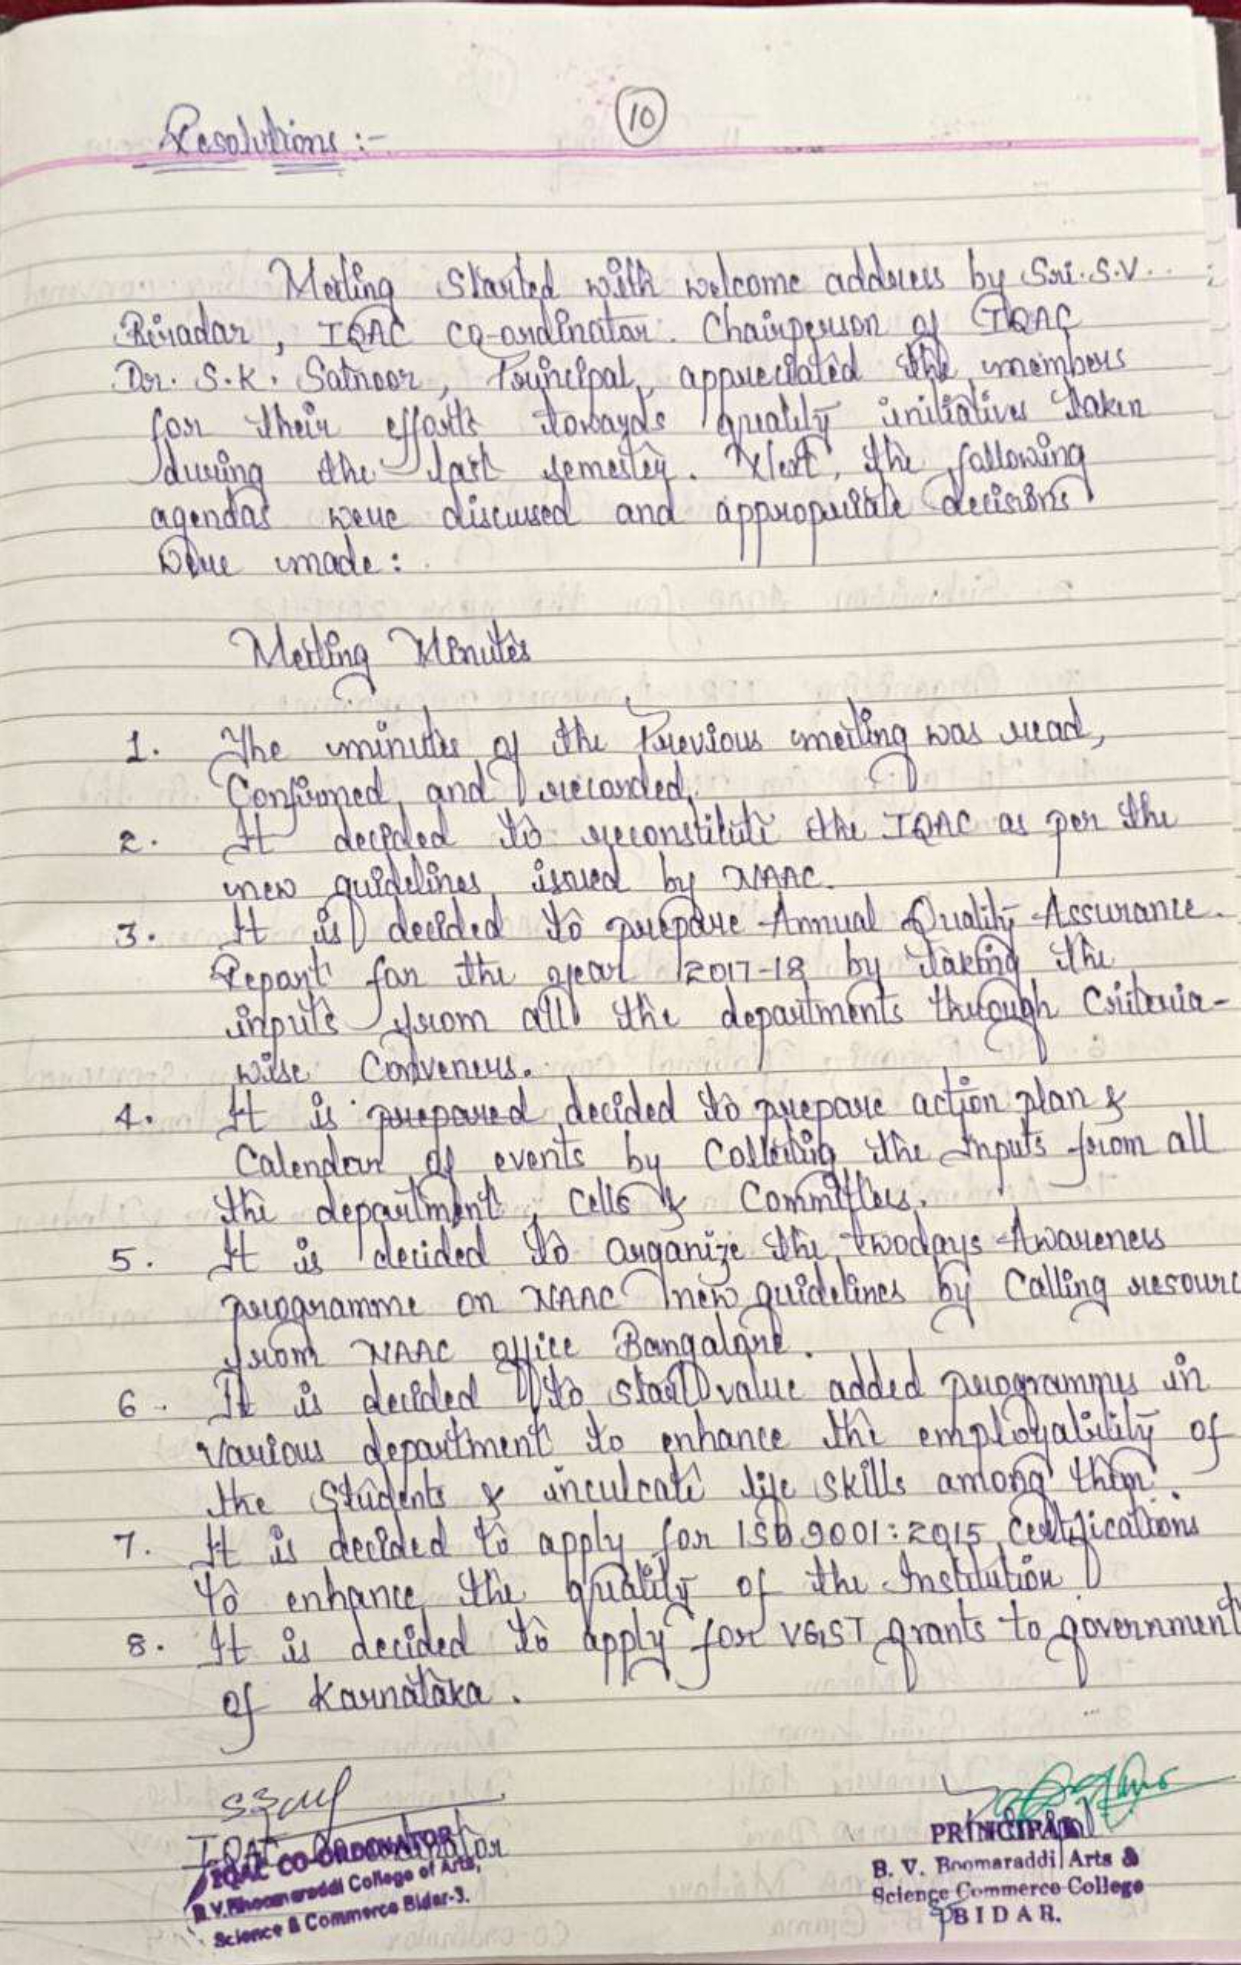 10
Resolutions :-
Meeting Started with welcome address by Sri. S.V.
Biradar, IQAC Co-ordinator. Chairperson of IQAC
Dr. S.K. Satnoor, Principal, appreciated the members
for their efforts towards quality initiatives taken
during the last semester. Next, the following
agendas were discussed and appropriate decisions
were made:
Meeting Minutes
1. The minutes of the Previous meeting was read,
Confirmed and recorded.
2. It decided to reconstitute the IQAC as per the
new guidelines issued by NAAC.
3. It is decided to prepare Annual Quality Assurance
Report for the year 2017-18 by taking the
inputs from all the departments through Criteria-
wise Conveners.
4. It is prepared decided to prepare action plan &
Calendar of events by Collecting the Inputs from all
the department, Cells & Committees.
5. It is decided to organize the twodays Awareness
programme on NAAC new guidelines by Calling resourc
from NAAC office Bangalore.
6. It is decided to start value added programmes in
various department to enhance the employability of
the Students & inculcate life skills among them.
7. It is decided to apply for ISO 9001:2015 Certifications
to enhance the quality of the Institution
8. It is decided to apply for VGST grants to government
of Karnataka.
IQAC Co-ordinator
IQAC CO-ORDINATOR
B.V.Bhoomaraddi College of Arts,
Science & Commerce Bidar-3.
PRINCIPAL
B. V. Boomaraddi Arts &
Science Commerce College
BIDAR.